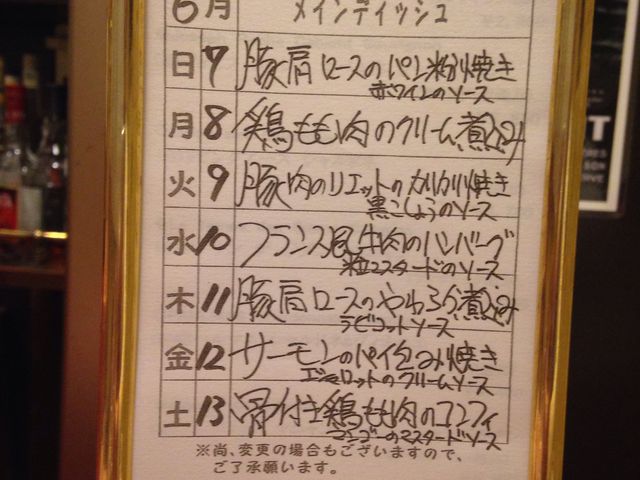 6月 メインディッシュ
日 7 豚肩ロースのパン粉焼き
赤ワインのソース
月 8 鶏もも肉のクリーム煮込み
火 9 豚肉のリエットのカリカリ焼き
黒こしょうのソース
水 10 フランス風牛肉のハンバーグ
粒マスタードのソース
木 11 豚肩ロースのやわらか煮込み
ラビゴットソース
金 12 サーモンのパイ包み焼き
エシャロットのクリームソース
土 13 骨付き鶏もも肉のコンフィ
マンゴーのマスタードソース
※尚、変更の場合もございますので、
ご了承願います。